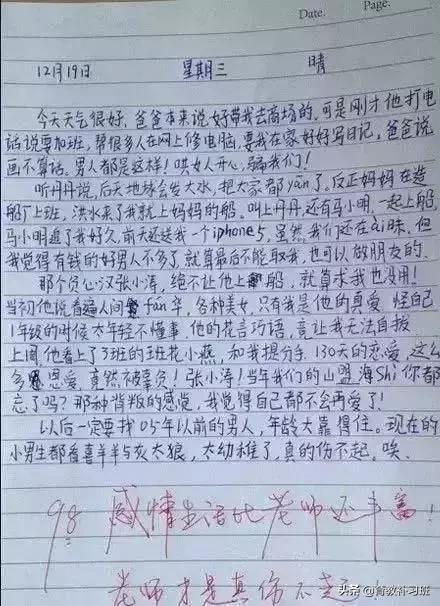 Date.
Page.
12月19日 星期三 晴
今天天气很好,爸爸本来说好带我去商场的,可是刚才他打电
话说要加班,帮很多人在网上修电脑,要我在家好好写日记,爸爸说
画不算话,男人都是这样!哄女人开心,骗我们!
听丹丹说,后天地球会发大水,把大家都yān了,反正妈妈在造
船厂上班,洪水来了我就上妈妈的船。叫上丹丹,还有马小明,一起上船,
马小明追了我好久,前天还送我一个iphone5,虽然我们还在ài昧,但
我觉得有钱的好男人不多了,就算最后不能取我,也可以做朋友的。
那个负心汉张小涛,绝不让他上船,就算求我也没用!
当初他说看遍人间fán华,各种美女,只有我是他的真爱,怪自己
1年级的时候太年轻不懂事,他的花言巧语,竟让我无法自拔
上周他看上了3班的班花小燕,和我提分手,130天的恋爱,这么
多恩爱,竟然被辜负!张小涛!当年我们的山盟海Shì你都
忘了吗?那种背叛的感觉,我觉得自己都不会再爱了!
以后一定要找05年以前的男人,年龄大靠得住。现在的
小男生都看喜羊羊与灰太狼,太幼稚了,真的伤不起,唉。
98 感情生活比老师还丰富!
老师才是真伤不起
头条@育教补习班